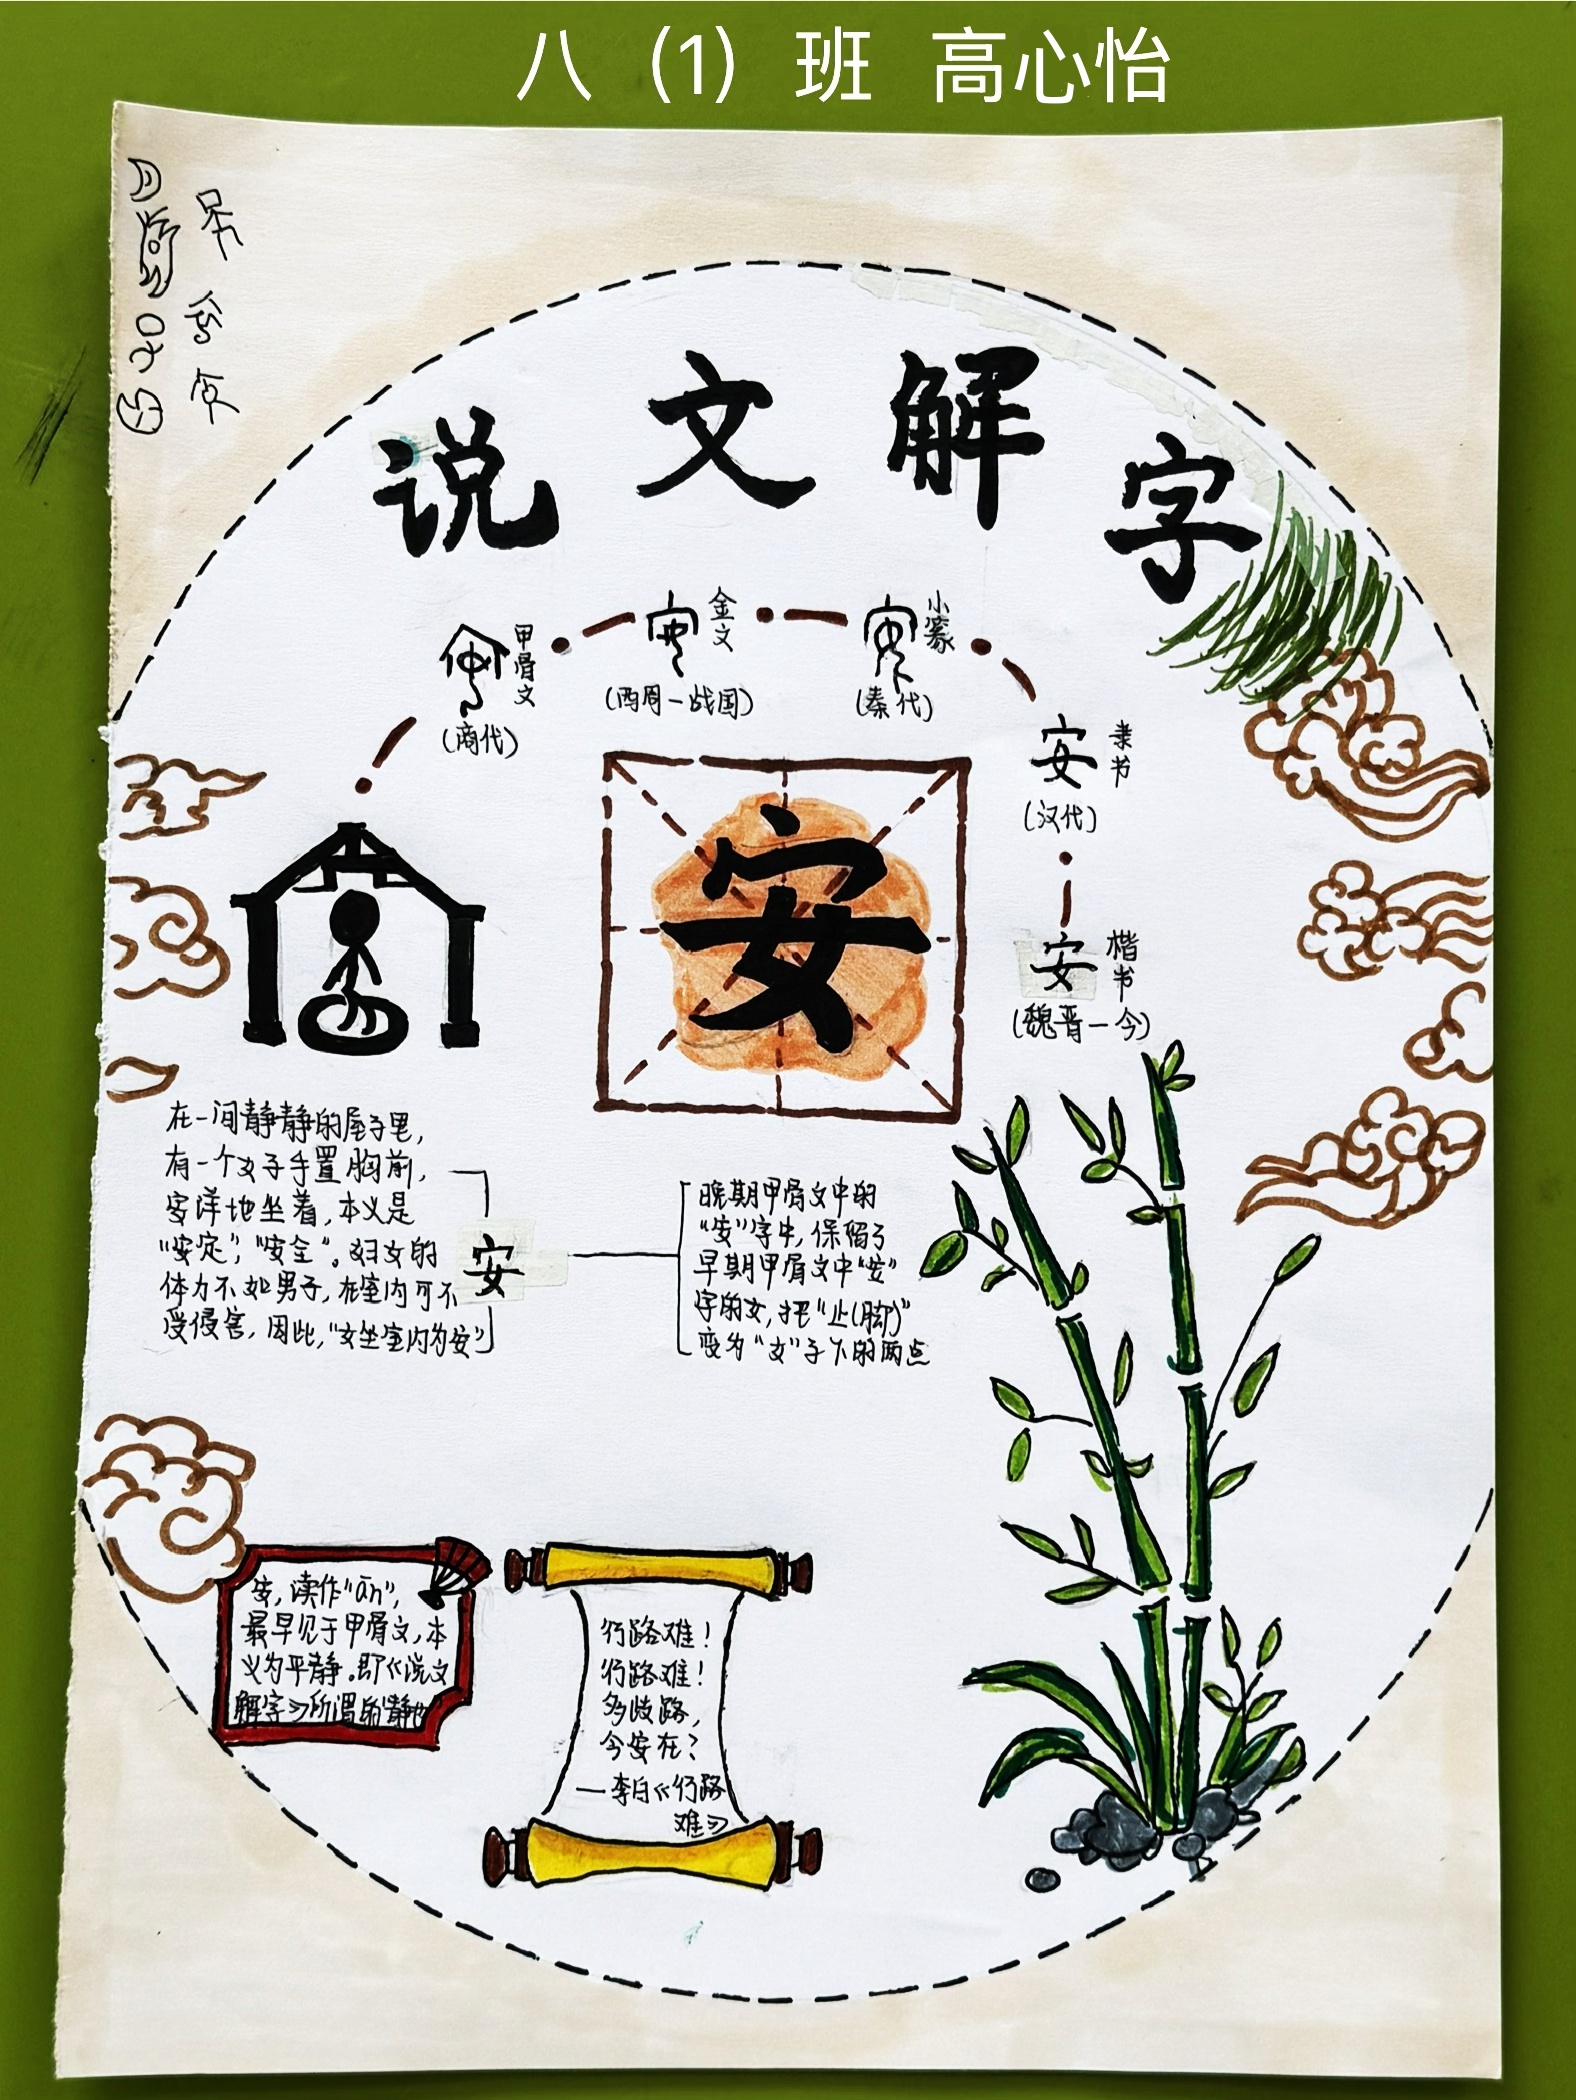 八（1）班 高心怡
说文解字
甲骨文
（商代）
金文
（西周—战国）
小篆
（秦代）
安
隶书
（汉代）
安
楷书
（魏晋—今）
安
在一间静静的屋子里，
有一个女子手置胸前，
安详地坐着，本义是
“安定”，“安全”。妇女的
体力不如男子，在室内可不
受侵害，因此，“女坐室内为安”
安
晚期甲骨文中的
“安”字中，保留了
早期甲骨文中“安”
字的女，把“止(脚)”
变为“女”子下的两点
安，读作“ān”，
最早见于甲骨文，本
义为平静。即《说文
解字》所谓的“静也”
行路难！
行路难！
多歧路，
今安在？
—李白《行路
难》